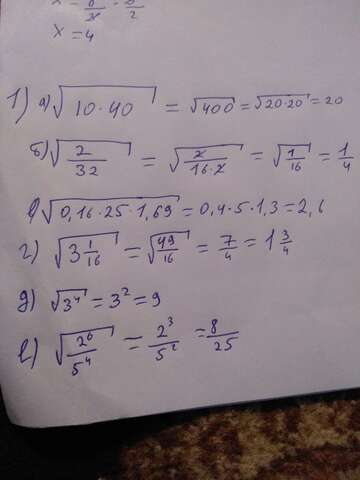 x = 4
1) а) √10·40 = √400 = √20·20 = 20
б) √2/32 = √2/16·2 = √1/16 = 1/4
в) √0,16·25·1,69 = 0,4·5·1,3 = 2,6
г) √3 1/16 = √49/16 = 7/4 = 1 3/4
д) √3⁴ = 3² = 9
е) √2⁶/5⁴ = 2³/5² = 8/25